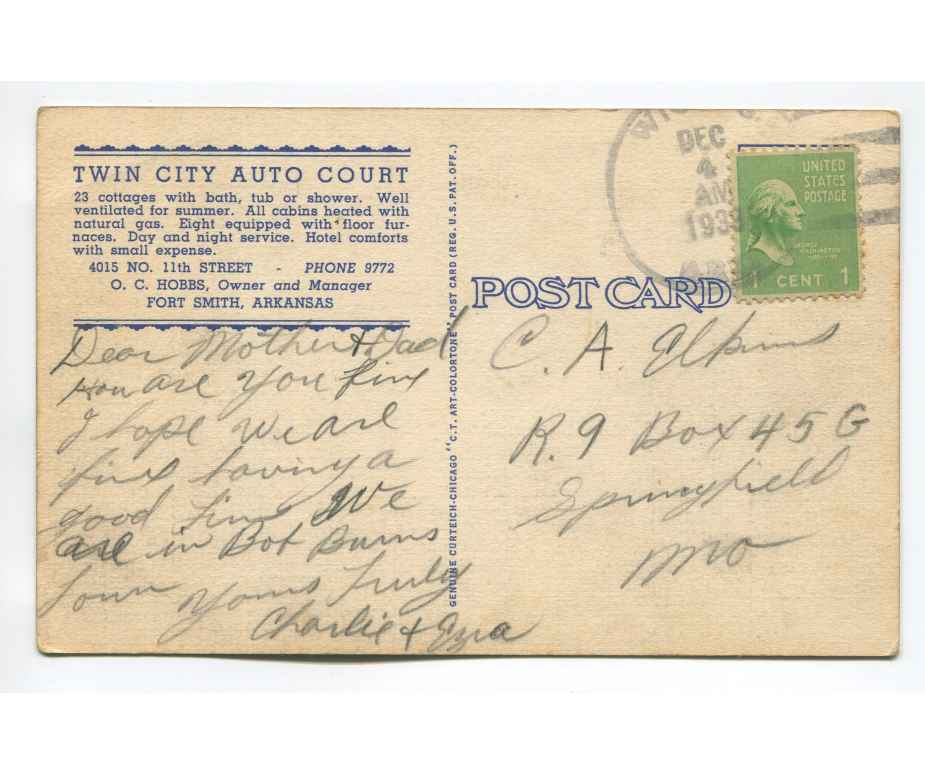 TWIN CITY AUTO COURT
23 cottages with bath, tub or shower. Well
ventilated for summer. All cabins heated with
natural gas. Eight equipped with floor fur-
naces. Day and night service. Hotel comforts
with small expense.
4015 NO. 11th STREET - PHONE 9772
O. C. HOBBS, Owner and Manager
FORT SMITH, ARKANSAS
Dear Mother & Dad
How are you fine
I hope We are
fine having a
good time We
are in Bob Burns
Town Yours Truly
Charlie + Ezra
GENUINE CURTEICH-CHICAGO "C.T. ART-COLORTONE" POST CARD (REG. U.S. PAT. OFF.)
POST CARD
DEC
4
AM
ARK
UNITED
STATES
POSTAGE
GEORGE
WASHINGTON
CENT 1
C. A. Elkins
R. 9 Box 45 G
Springfield
Mo